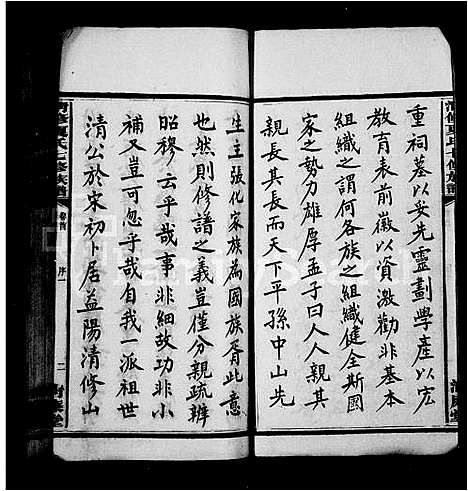 重祠墓以妥先靈劃學產以宏
教育表前徽以資激勸非基本
組織之謂何各族之組織健全斯國
家之勢力雄厚孟子曰人人親其
親長其長而天下平孫中山先
生主張化家族為國族胥此意
也然則修譜之義豈僅分親疏辨
昭穆云乎哉事非細故功非小
補又豈可忽乎哉自我一派祖世
清公於宋初卜居益陽清修山
清修夏氏七修族譜
卷首
序一
二